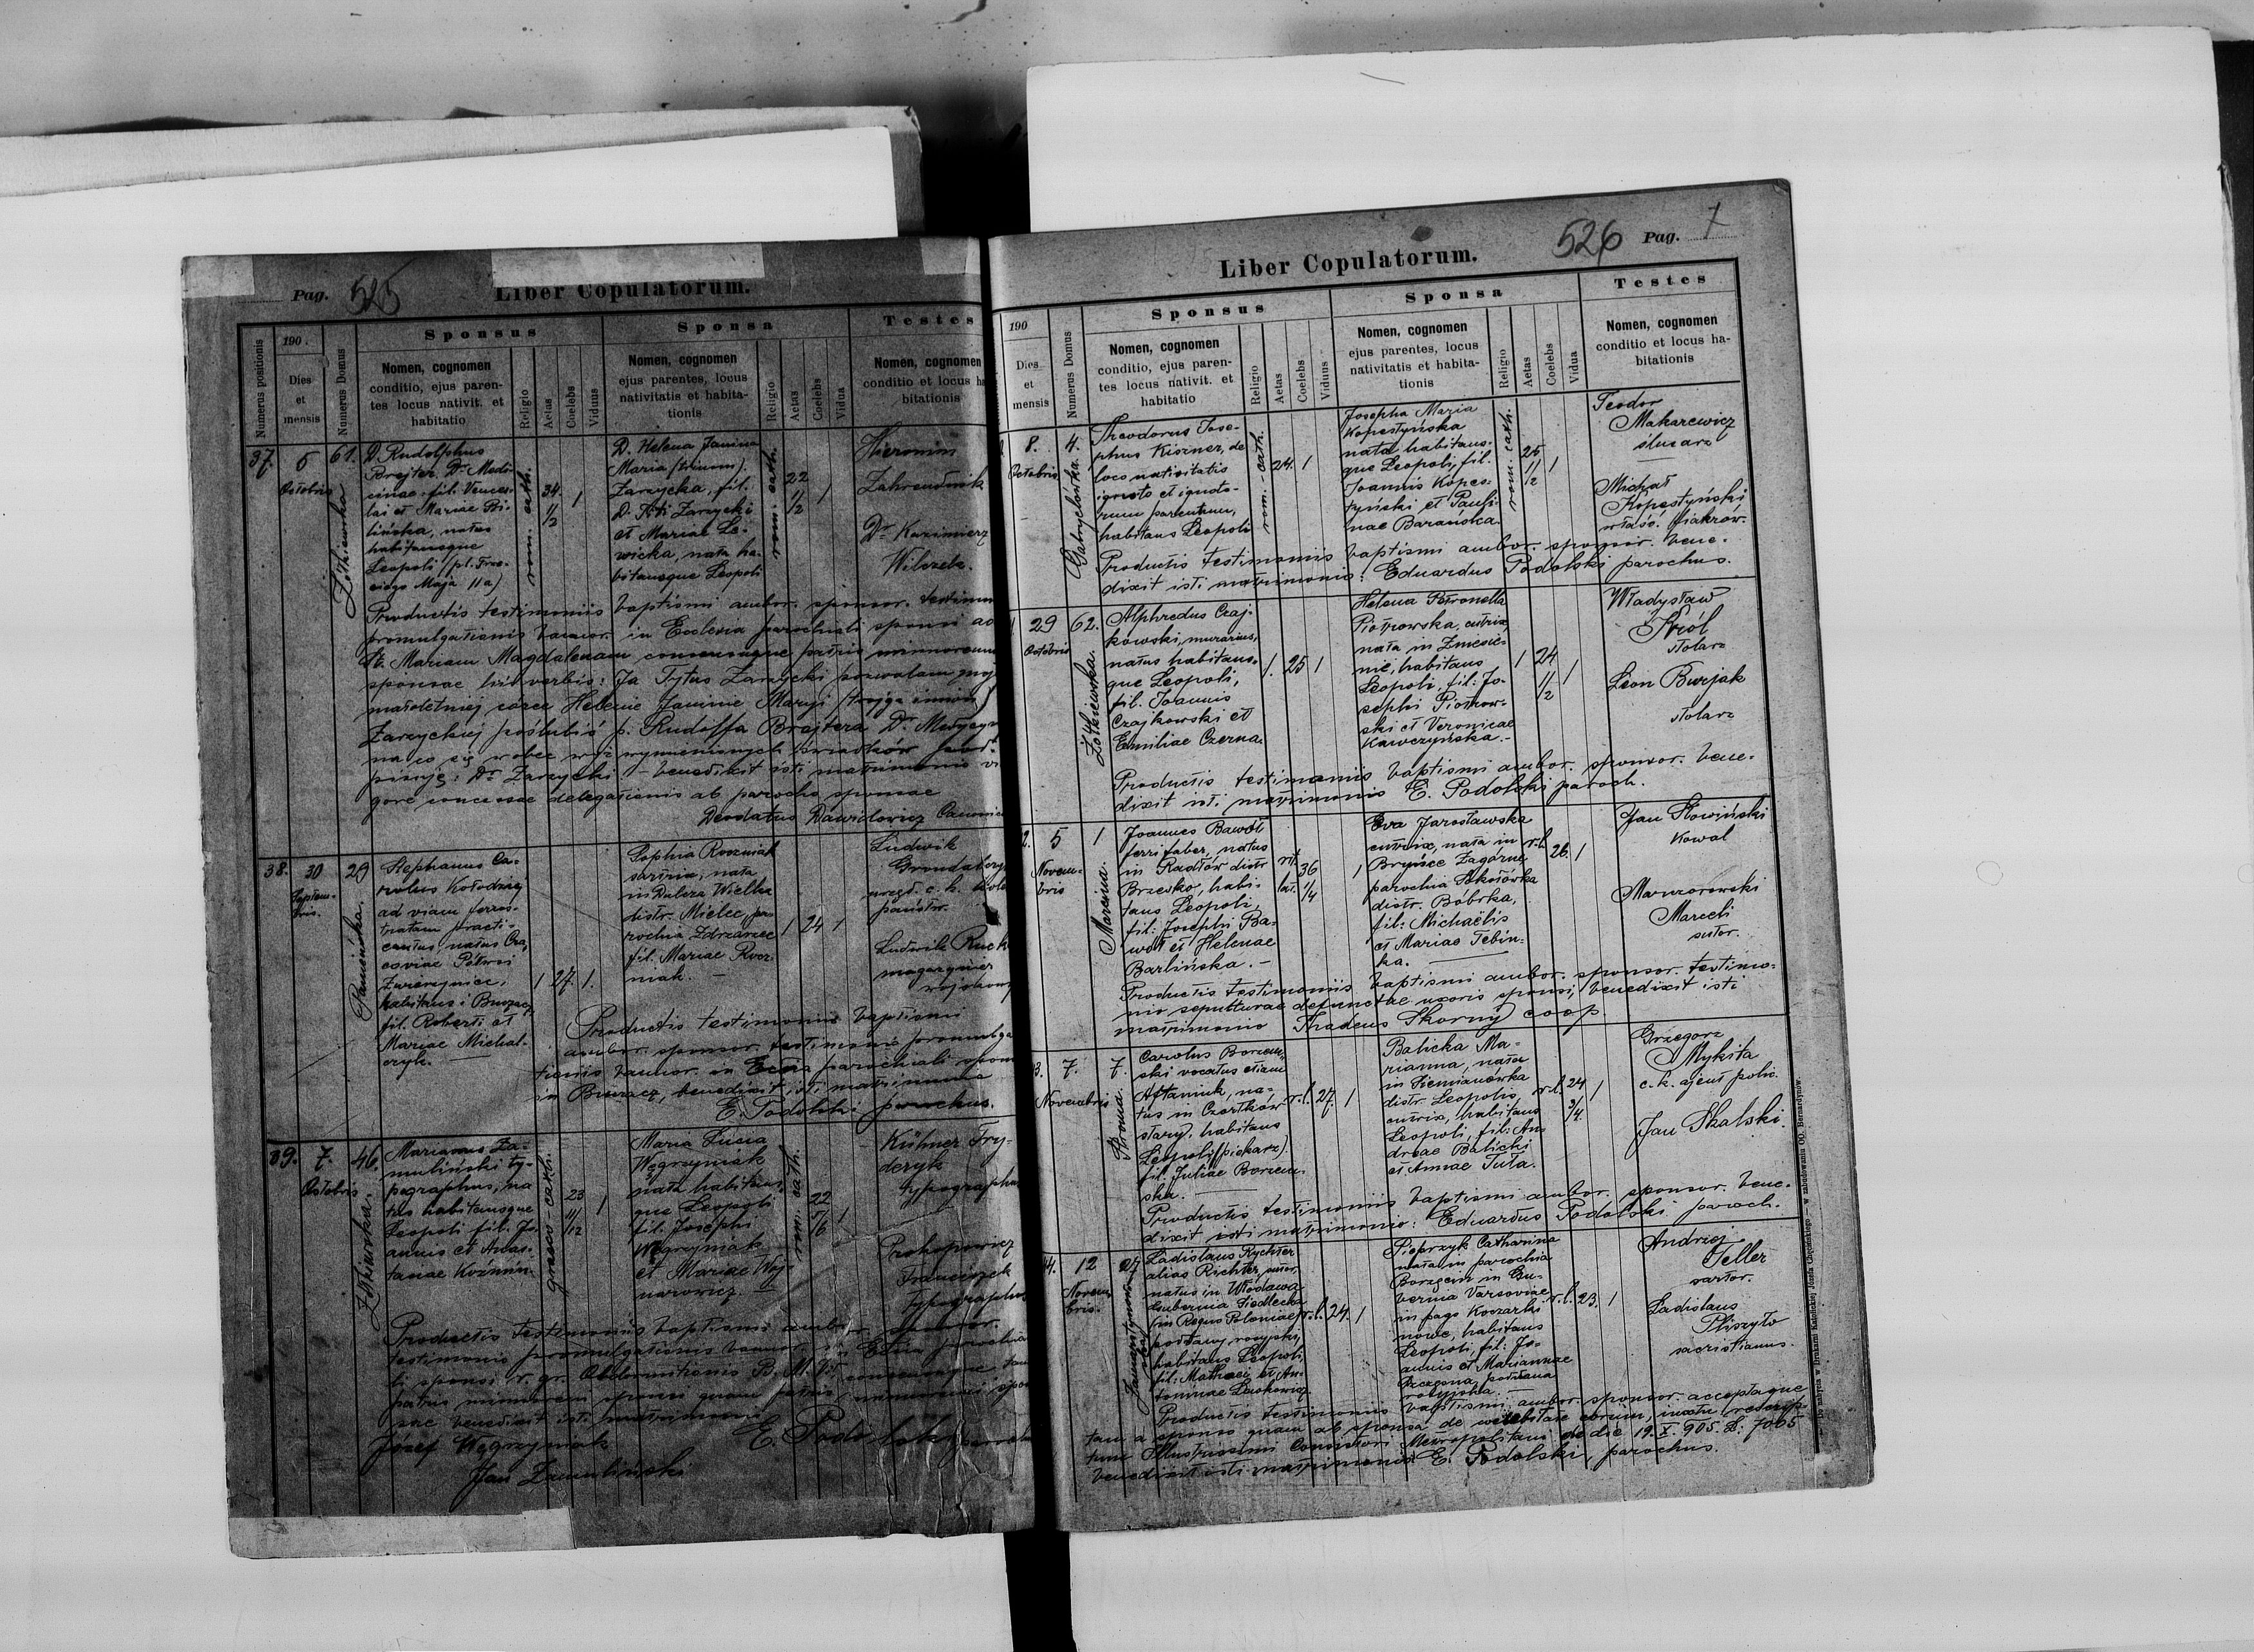 Pag. 525
Liber Copulatorum.
Numerus positionis
190 .
Dies
et
mensis
Numerus Domus
Sponsus
Nomen, cognomen
conditio, ejus paren-
tes locus nativit. et
habitatio
Religio
Aetas
Coelebs
Viduus
Sponsa
Nomen, cognomen
ejus parentes, locus
nativitatis et habita-
tionis
Religio
Aetas
Coelebs
Vidua
Testes
Nomen, cognomen
conditio et locus ha
bitationis
37.
5
Octobris
61.
Żółkiewska
D. Rudolphus
Brejter Dr Medi-
cinae fil. Vences-
lai et Mariae Bi-
lińska, natus
habitansque
Leopoli (pl. Trze-
ciego Maja 11a)
rom. cath.
34
1/2
1
D. Helena Janina
Maria (trinom).
Zarzycka, fil.
D. Titi Zarzycki
et Mariae Le-
wicka, nata ha-
bitansque Leopoli
rom. cath.
22
1/2
1
Hieronim
Dr Kazimierz
Wilczek.
Productis testimoniis baptismi ambor. sponsor. testimon
promulgationis bannor. in Ecclesia parochiali sponsi ad
St. Mariam Magdalenam consensuque patris minorennis
sponsae his verbis: Ja Tytus Zarzycki pozwalam mej
małoletniej córce Helenie Janinie Maryi (trojga imion)
Zarzyckiej poślubić p. Rudolfa Brejtera Dr Medycyny
na co się wobec wyż wymienionych świadków pod-
pisuję: Dr Zarzycki. - benedixit isti matrimonio vi
gore concessae delegationis ab parocho sponsae
Deodatus Dawidowicz Canonicus
38.
30
Septem-
bris.
29
Panieńska.
Stephanus Ca-
rolus Kołodziej
ad viam ferro-
stratam practi-
cantus, natus Cra-
coviae Półwsi
Zwierzyniec,
habitans i Buczacz,
fil. Roberti et
Mariae Michal-
czyk.
1
27.
1.
Sophia Roczniak
sartrix, nata
in Dulcza Wielka
distr. Mielec, pa-
rochia Zdziarzec
fil. Mariae Rocz-
niak. -
1
24
1
Ludwik
urzęd. c. k. kolei
państw.
Ludwik Ruck
magazynier
wojskowy
Productis testimoniis baptismi
ambor. sponsor. testimonio promulga
tionis bannor. in Eccia parochiali sponsi
in Buczacz, benedixit isti matrimonio
E. Podolski parochus.
39.
7.
Octobris
46.
Żółkiewska.
Marianus Za-
muliński ty-
pographus, na
tus habitansque
Leopoli fil. Jo-
annis et Anas-
tasiae Koźmin.
graeco cath.
23
11/12
1
Maria Lucia
Węgrzyniak
nata habitans-
que Leopoli
fil. Josephi
Węgrzyniak
et Mariae Woj-
narowicz. -
rom. cath.
22
5/6
1
Kühner Fry-
deryk
typographus
Prokopowicz
Franciszek
typographus
Productis testimoniis baptismi ambor. sponsor.
testimonio promulgationis bannor. in Eccia parochia
li sponsi r. gr. Obdormitionis B. M. V. consensuque tam
patris minorenni sponsi quam patris minorenni spon
sae benedixit isti matrimonio
Józef Węgrzyniak
E. Podolski parochus
Jan Zamuliński
526 Pag. 7
Liber Copulatorum.
190
Dies
et
mensis
Numerus Domus
Sponsus
Nomen, cognomen
conditio, ejus paren-
tes locus nativit. et
habitatio
Religio
Aetas
Coelebs
Viduus
Sponsa
Nomen, cognomen
ejus parentes, locus
nativitatis et habita-
tionis
Religio
Aetas
Coelebs
Vidua
Testes
Nomen, cognomen
conditio et locus ha-
bitationis
8.
Octobris
4.
Gabryelówka.
Theodorus Jose-
phus Kiszner, de
loco nativitatis
ignoto et ignoto-
rum parentum,
habitans Leopoli
rom.-cath.
24.
1
Josepha Maria
Kopestyńska
nata habitans-
que Leopoli, fil.
Joannis Kopes-
tyński et Pauli-
nae Barańska.
rom. cath.
25
11/12
1
Teodor
Makarewicz
ślusarz
Michał
Kopestyński
właśc. fiakrow.
Productis testimoniis baptismi ambor. sponsor. bene-
dixit isti matrimonio: Eduardus Podolski parochus.
29
Octobris
62.
Żółkiewska.
Alphredus Czaj-
kowski, murarius,
natus habitans-
que Leopoli,
fil. Joannis
Czajkowski et
Emiliae Czerna.
1.
25
1
Helena Petronella
Piotrowska, cutrix,
nata in Zniesie-
nie, habitans
Leopoli, fil: Jo-
sephi Piotrow-
ski et Veronicae
Kawczyńska. -
1
24
1/2
1
Władysław
Król
stolarz
Leon Burjak
stolarz
Productis testimoniis baptismi ambor. sponsor. bene-
dixit isti matrimonio E. Podolski paroch.
2.
5
Novem-
bris
1
Marcina.
Joannes Bawół
ferri faber, natus
in Radłów distr.
Brzesko, habi-
tans Leopoli,
fil: Josephi Ba-
wół et Helenae
Barlińska. -
rit.
lat.
36
1/4
1
Eva Jarosławska
cutrix, nata in
Brynce Zagórne
parochia Sokołówka
distr. Bobrka,
fil: Michaëlis
et Mariae Tebin-
ka.
r. l.
26.
1
Jan Słowiński
kowal
Marceli
sutor.
Productis testimoniis baptismi ambor. sponsor. testimo-
nio sepulturae defunctae uxoris sponsi, benedixit isti
matrimonio Thadeus Skorny coop
3.
7.
Novembris
7.
Stroma.
Carolus Borzem-
ski vocatus etiam
Aftaniuk, na-
tus in Czortków
stary, habitans
Leopoli, (piekarz).
fil. Juliae Borzem-
ska.
r. l.
27.
1
Balicka Ma-
rianna, nata
in Siemianówka
distr. Leopolis,
cutrix, habitans
Leopoli, fil: An-
dreae Balicki
et Annae Tuła.
r. l.
24
3/4.
1
Grzegorz
Mykita
c. k. ajent polic.
Jan Skalski.
Productis testimoniis baptismi ambor. sponsor. bene-
dixit isti matrimonio: Eduardus Podolski paroch.
44.
12
Novem
bris.
Ladislaus Rychter
alias Richter, sutor,
natus in Włodawa
Gubernia Siedlecka
(in Regno Poloniae)
poddany rosyjski,
habitans Leopoli,
fil: Mathaei et An-
toninae Laskowicz
r. l.
24.
1
Pieprzyk Catharina
nata in parochia
Borzęcin in Gu-
bernia Varsoviae
in pago Koczarki
nowe, habitans
Leopoli, fil: Jo-
annis et Mariannae
Szczęsna, poddana
rosyjska. -
r. l.
23.
1
Andrzej
Teller
sartor.
Ladislaus
Pliszyło
sacristianus.
Productis testimoniis baptismi ambor. sponsor. acceptaque
tam a sponso quam ab sponsa de coelibatu eorum, iuxta rescrip-
tum Illustrissimi Consistorii Metropolitani de die 19. X. 905. L: 7005
benedixit isti matrimonio E. Podolski, parochus.
Do nabycia w Drukarni Katolickiej Józefa Chęcińskiego - w zabudowaniu OO. Bernardynów.